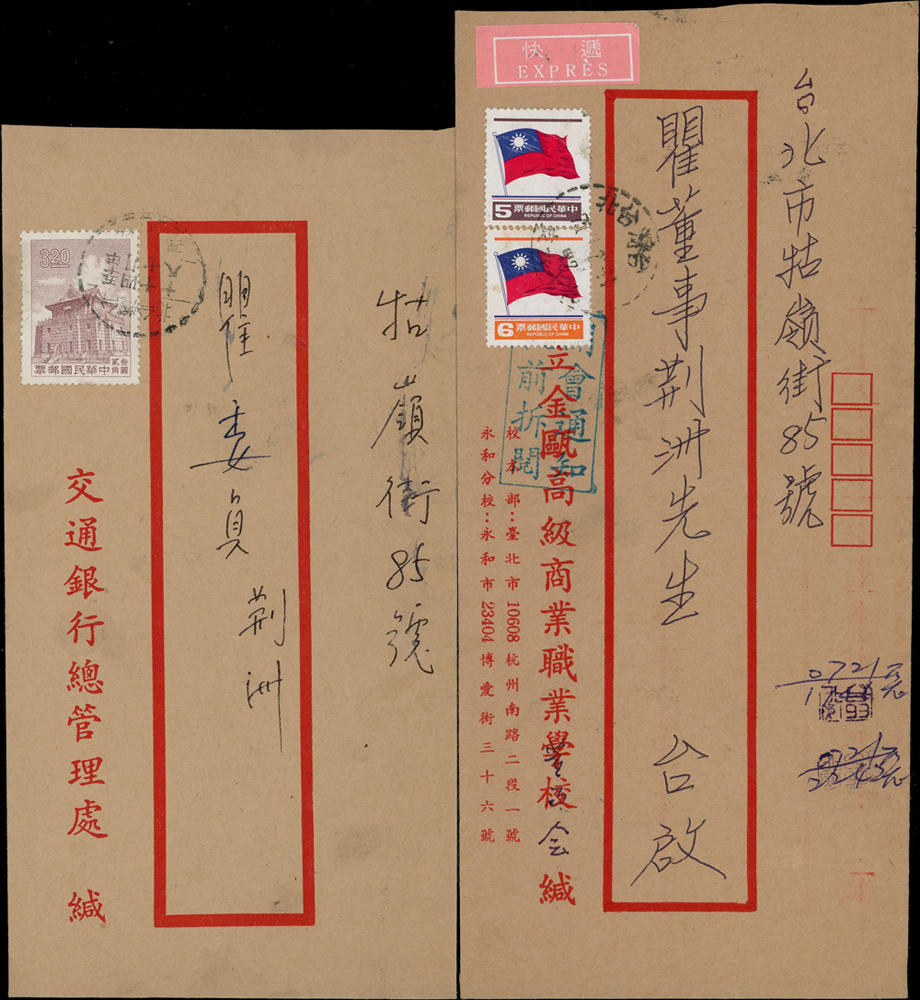 牯嶺街85號
瞿委員 荆洲
3.20
叁圓
貳角
票郵國民華中
交通銀行總管理處 緘
快遞
EXPRÈS
台北市牯嶺街85號
瞿董事荆洲先生 台啟
5
票郵國民華中
REPUBLIC OF CHINA
6
票郵國民華中
REPUBLIC OF CHINA
台北
開會通知
前拆閱
立金甌高級商業職業學校董事会緘
校本部：臺北市10608杭州南路二段一號
永和分校：永和市23404博愛街三十六號